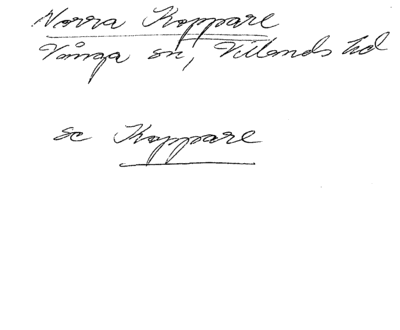 Norra Koppare
Vånga sn, Villands hd
se Koppare